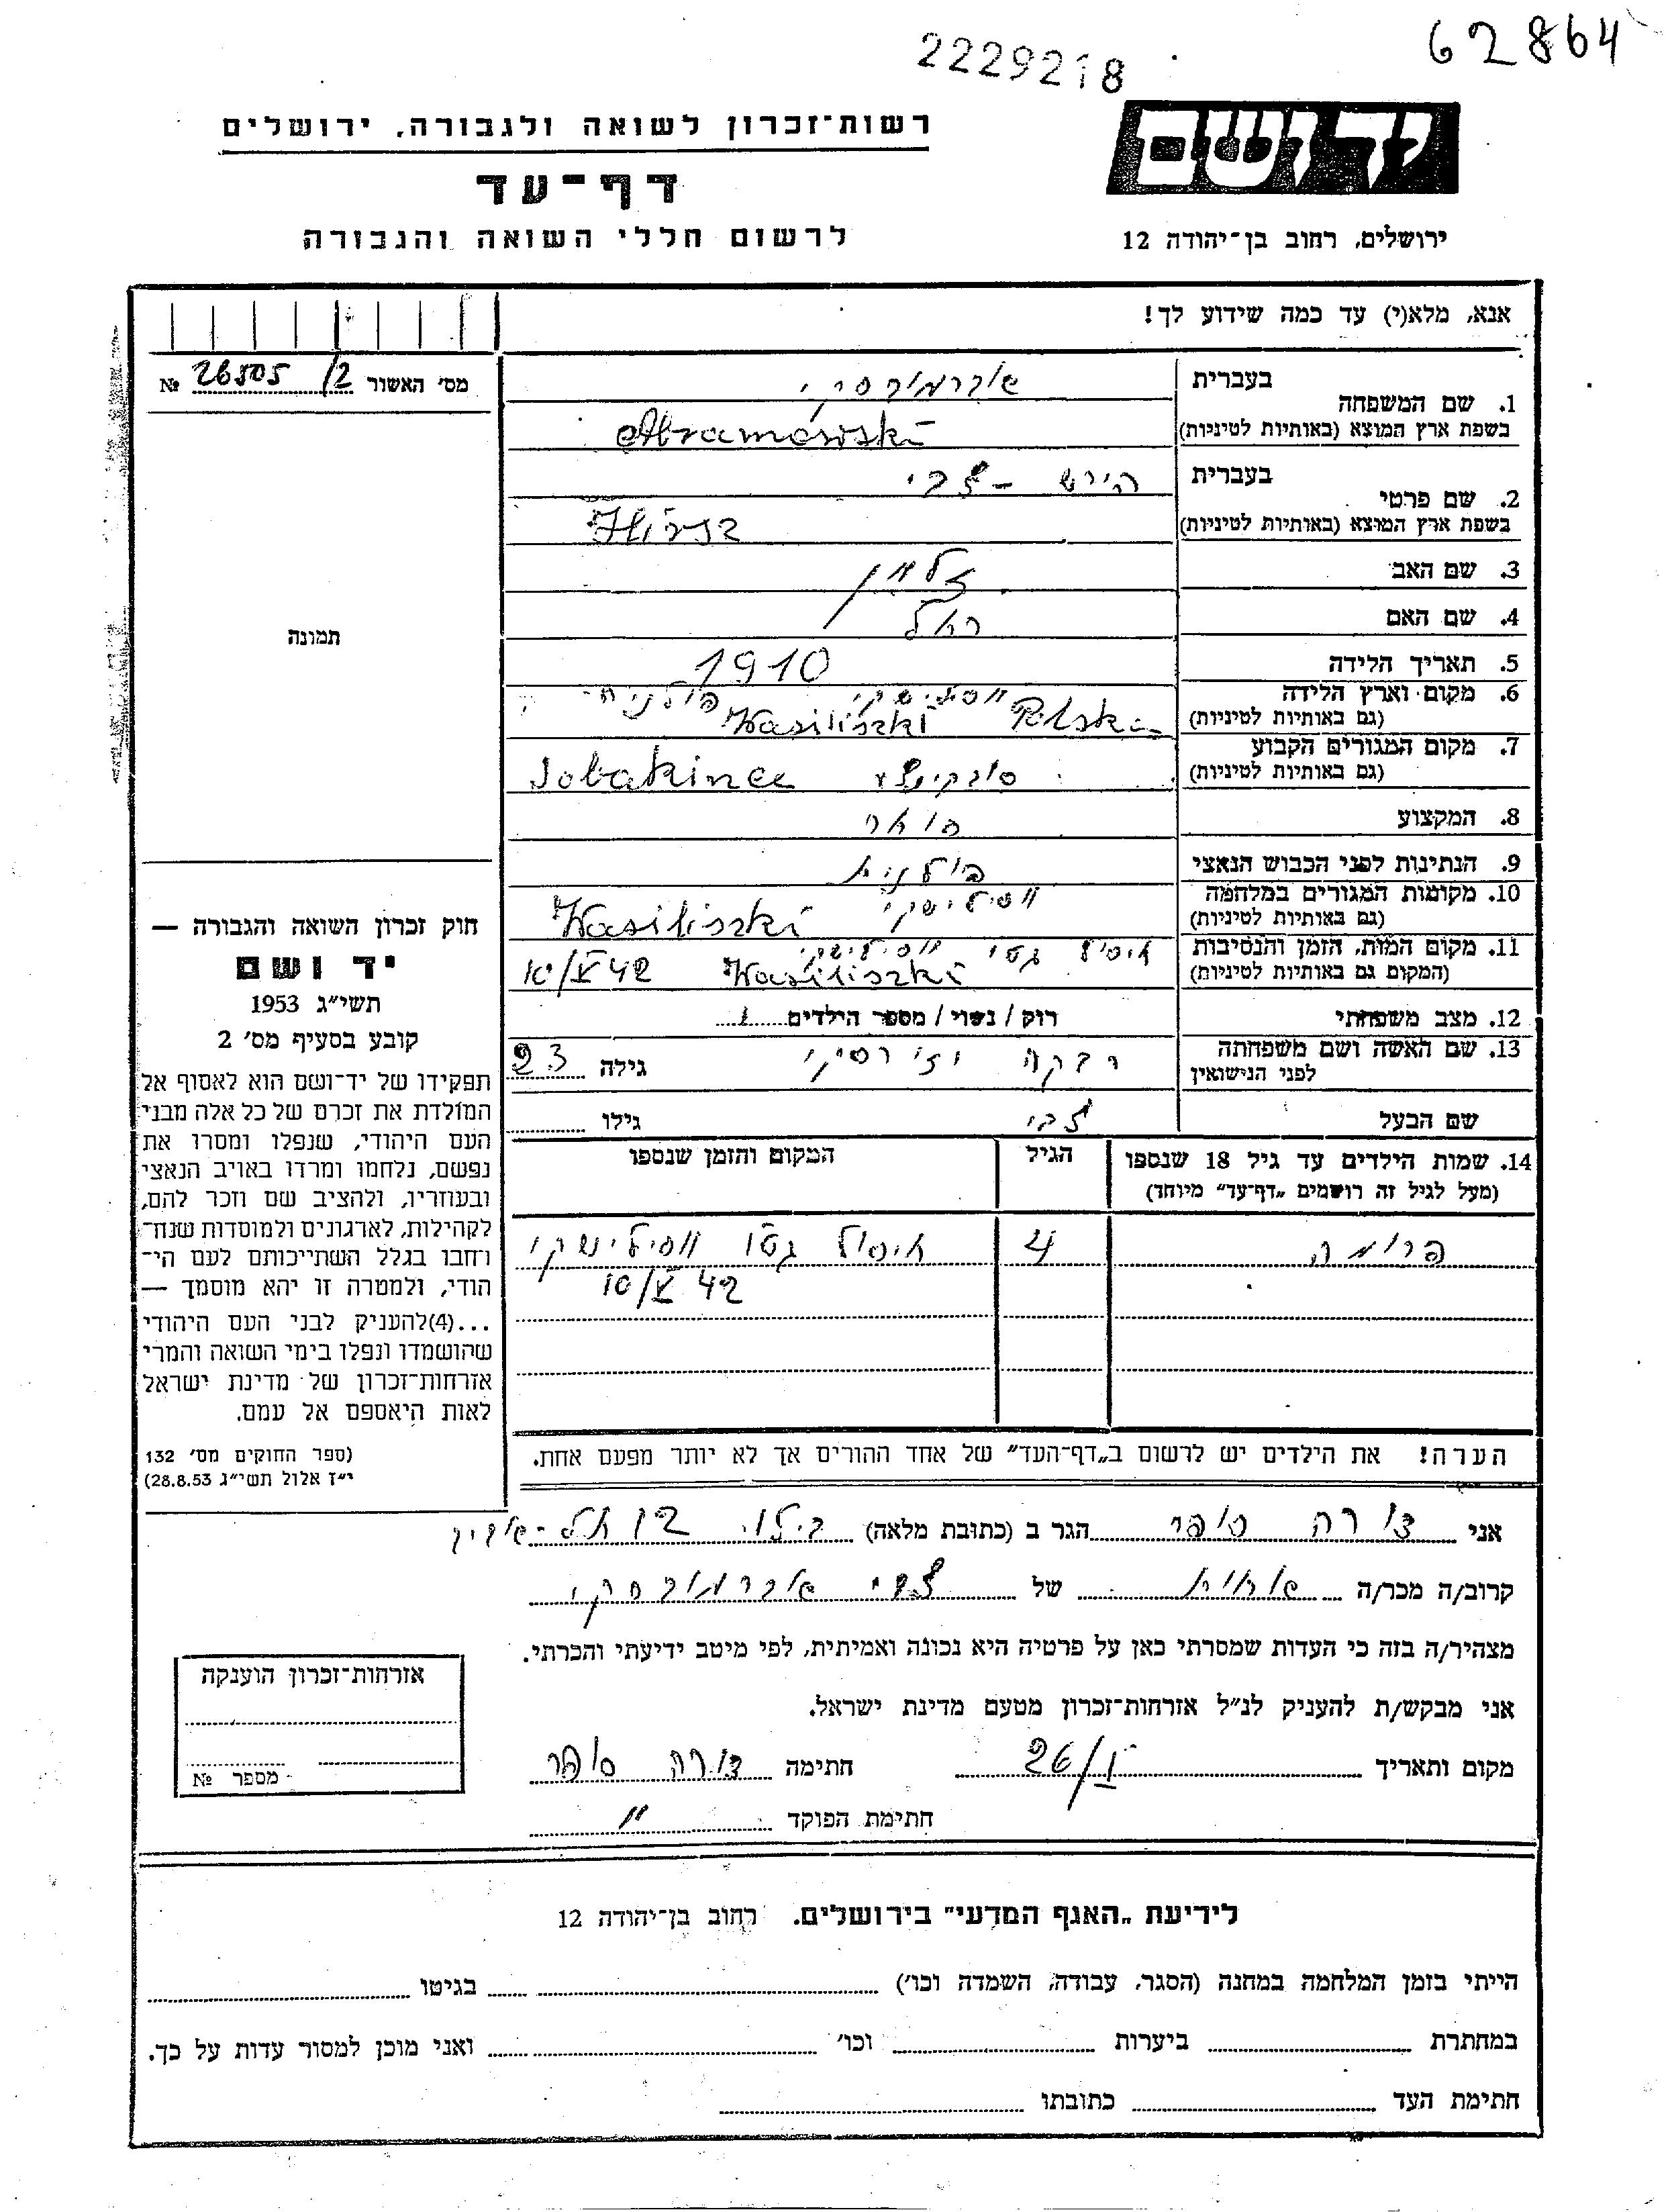 62864
2229218
יד ושם
רשות־זכרון לשואה ולגבורה, ירושלים
דף־עד
ירושלים, רחוב בן־יהודה 12
לרשום חללי השואה והגבורה
אנא, מלא(י) עד כמה שידוע לך!
מס׳ האשור 26505/2 №
בעברית אברמובסקי
1. שם המשפחה
בשפת ארץ המוצא (באותיות לטיניות) Abramowski
בעברית הירש - צבי
2. שם פרטי
בשפת ארץ המוצא (באותיות לטיניות) Hirsz
3. שם האב זלמן
4. שם האם רחל
תמונה
5. תאריך הלידה 1910
6. מקום וארץ הלידה ווסילישקי
(גם באותיות לטיניות) Wasiliszki Polska
7. מקום המגורים הקבוע
(גם באותיות לטיניות) סובקינצי Sobakince
8. המקצוע
9. הנתינות לפני הכבוש הנאצי פולנית
10. מקומות המגורים במלחמה ווסילישקי
(גם באותיות לטיניות) Wasiliszki
11. מקום המות, הזמן והנסיבות חיסול גטו ווסילישקי
(המקום גם באותיות לטיניות) Wasiliszki 10/V 42
12. מצב משפחתי רוק / נשוי / מספר הילדים 1
13. שם האשה ושם משפחתה רבקה גילה 23
לפני הנישואין
שם הבעל צבי גילו
14. שמות הילדים עד גיל 18 שנספו הגיל המקום והזמן שנספו
(מעל לגיל זה רושמים „דף־עד״ מיוחד)
פרומה 4 חיסול גטו ווסילישקי
10/V 42
הערה! את הילדים יש לרשום ב„דף־העד״ של אחד ההורים אך לא יותר מפעם אחת.
חוק זכרון השואה והגבורה —
יד ושם
תשי״ג 1953
קובע בסעיף מס׳ 2
תפקידו של יד־ושם הוא לאסוף אל
המולדת את זכרם של כל אלה מבני
העם היהודי, שנפלו ומסרו את
נפשם, נלחמו ומרדו באויב הנאצי
ובעוזריו, ולהציב שם וזכר להם,
לקהילות, לארגונים ולמוסדות שנח־
רחבו בגלל השתייכותם לעם הי־
הודי, ולמטרה זו יהא מוסמך —
...(4)להעניק לבני העם היהודי
שהושמדו ונפלו בימי השואה והמרי
אזרחות־זכרון של מדינת ישראל
לאות היאספם אל עמם.
(ספר החוקים מס׳ 132
י״ז אלול תשי״ג 28.8.53)
אני סופר הגר ב (כתובת מלאה) בילו 12 תל-אביב
קרוב/ה מכר/ה אחות של צבי אברמובסקי
מצהיר/ה בזה כי העדות שמסרתי כאן על פרטיה היא נכונה ואמיתית, לפי מיטב ידיעתי והכרתי.
אני מבקש/ת להעניק לנ״ל אזרחות־זכרון מטעם מדינת ישראל.
מקום ותאריך 26/I חתימה סופר
חתימת הפוקד ״
אזרחות־זכרון הוענקה
מספר №
לידיעת „האגף המדעי״ בירושלים. רחוב בן־יהודה 12
הייתי בזמן המלחמה במחנה (הסגר, עבודה, השמדה וכו׳) בגיטו
במחתרת ביערות וכו׳ ואני מוכן למסור עדות על כך.
חתימת העד כתובתו